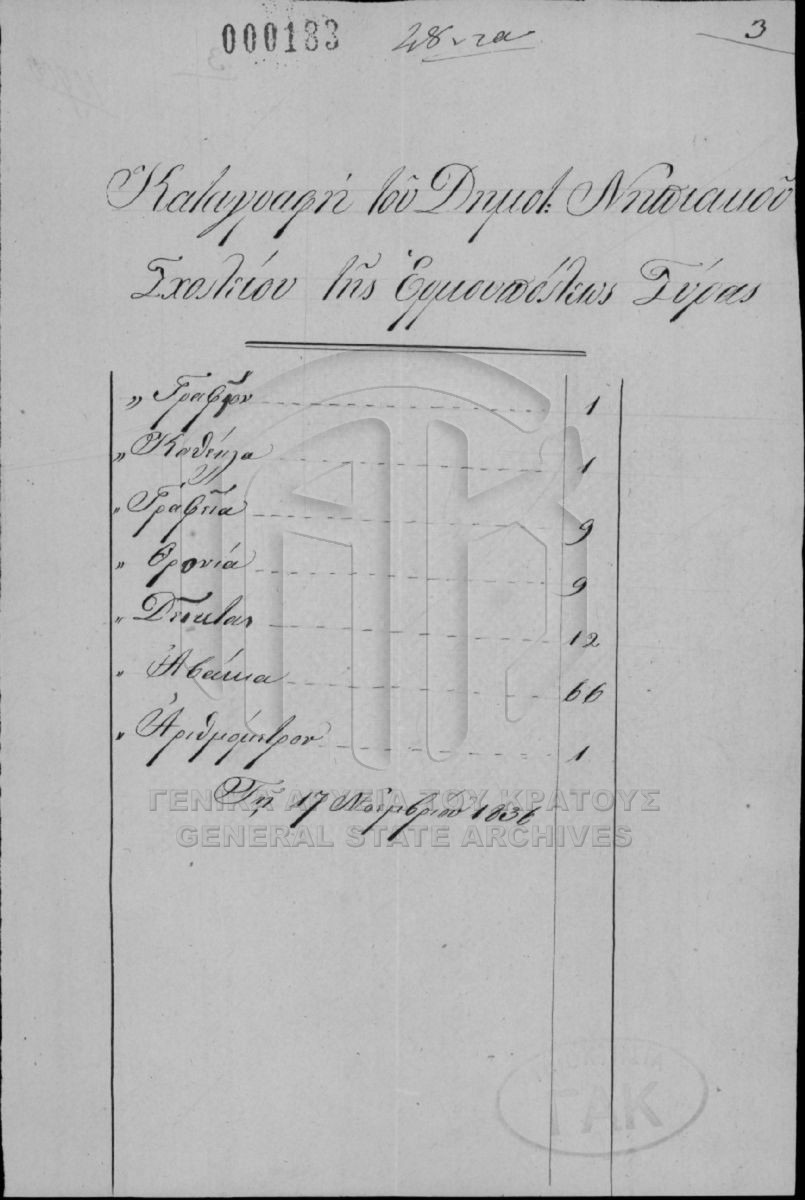 000183
3
Καταγραφή τοῦ Δημοτ: Νηπιακοῦ
Σχολείου τῆς Ἑρμουπόλεως Σύρας
„ Γραφεῖον 1
„ Καθέκλα 1
„ Γραφεῖα 9
„ Θρονία 9
„ Δεῖκται 12
„ Ἀβάκια 66
„ Ἀριθμόμετρον 1
Τῇ 17 Νοεμβρίου 1836
ΓΕΝΙΚΑ ΑΡΧΕΙΑ ΤΟΥ ΚΡΑΤΟΥΣ
GENERAL STATE ARCHIVES
ΓΑΚ